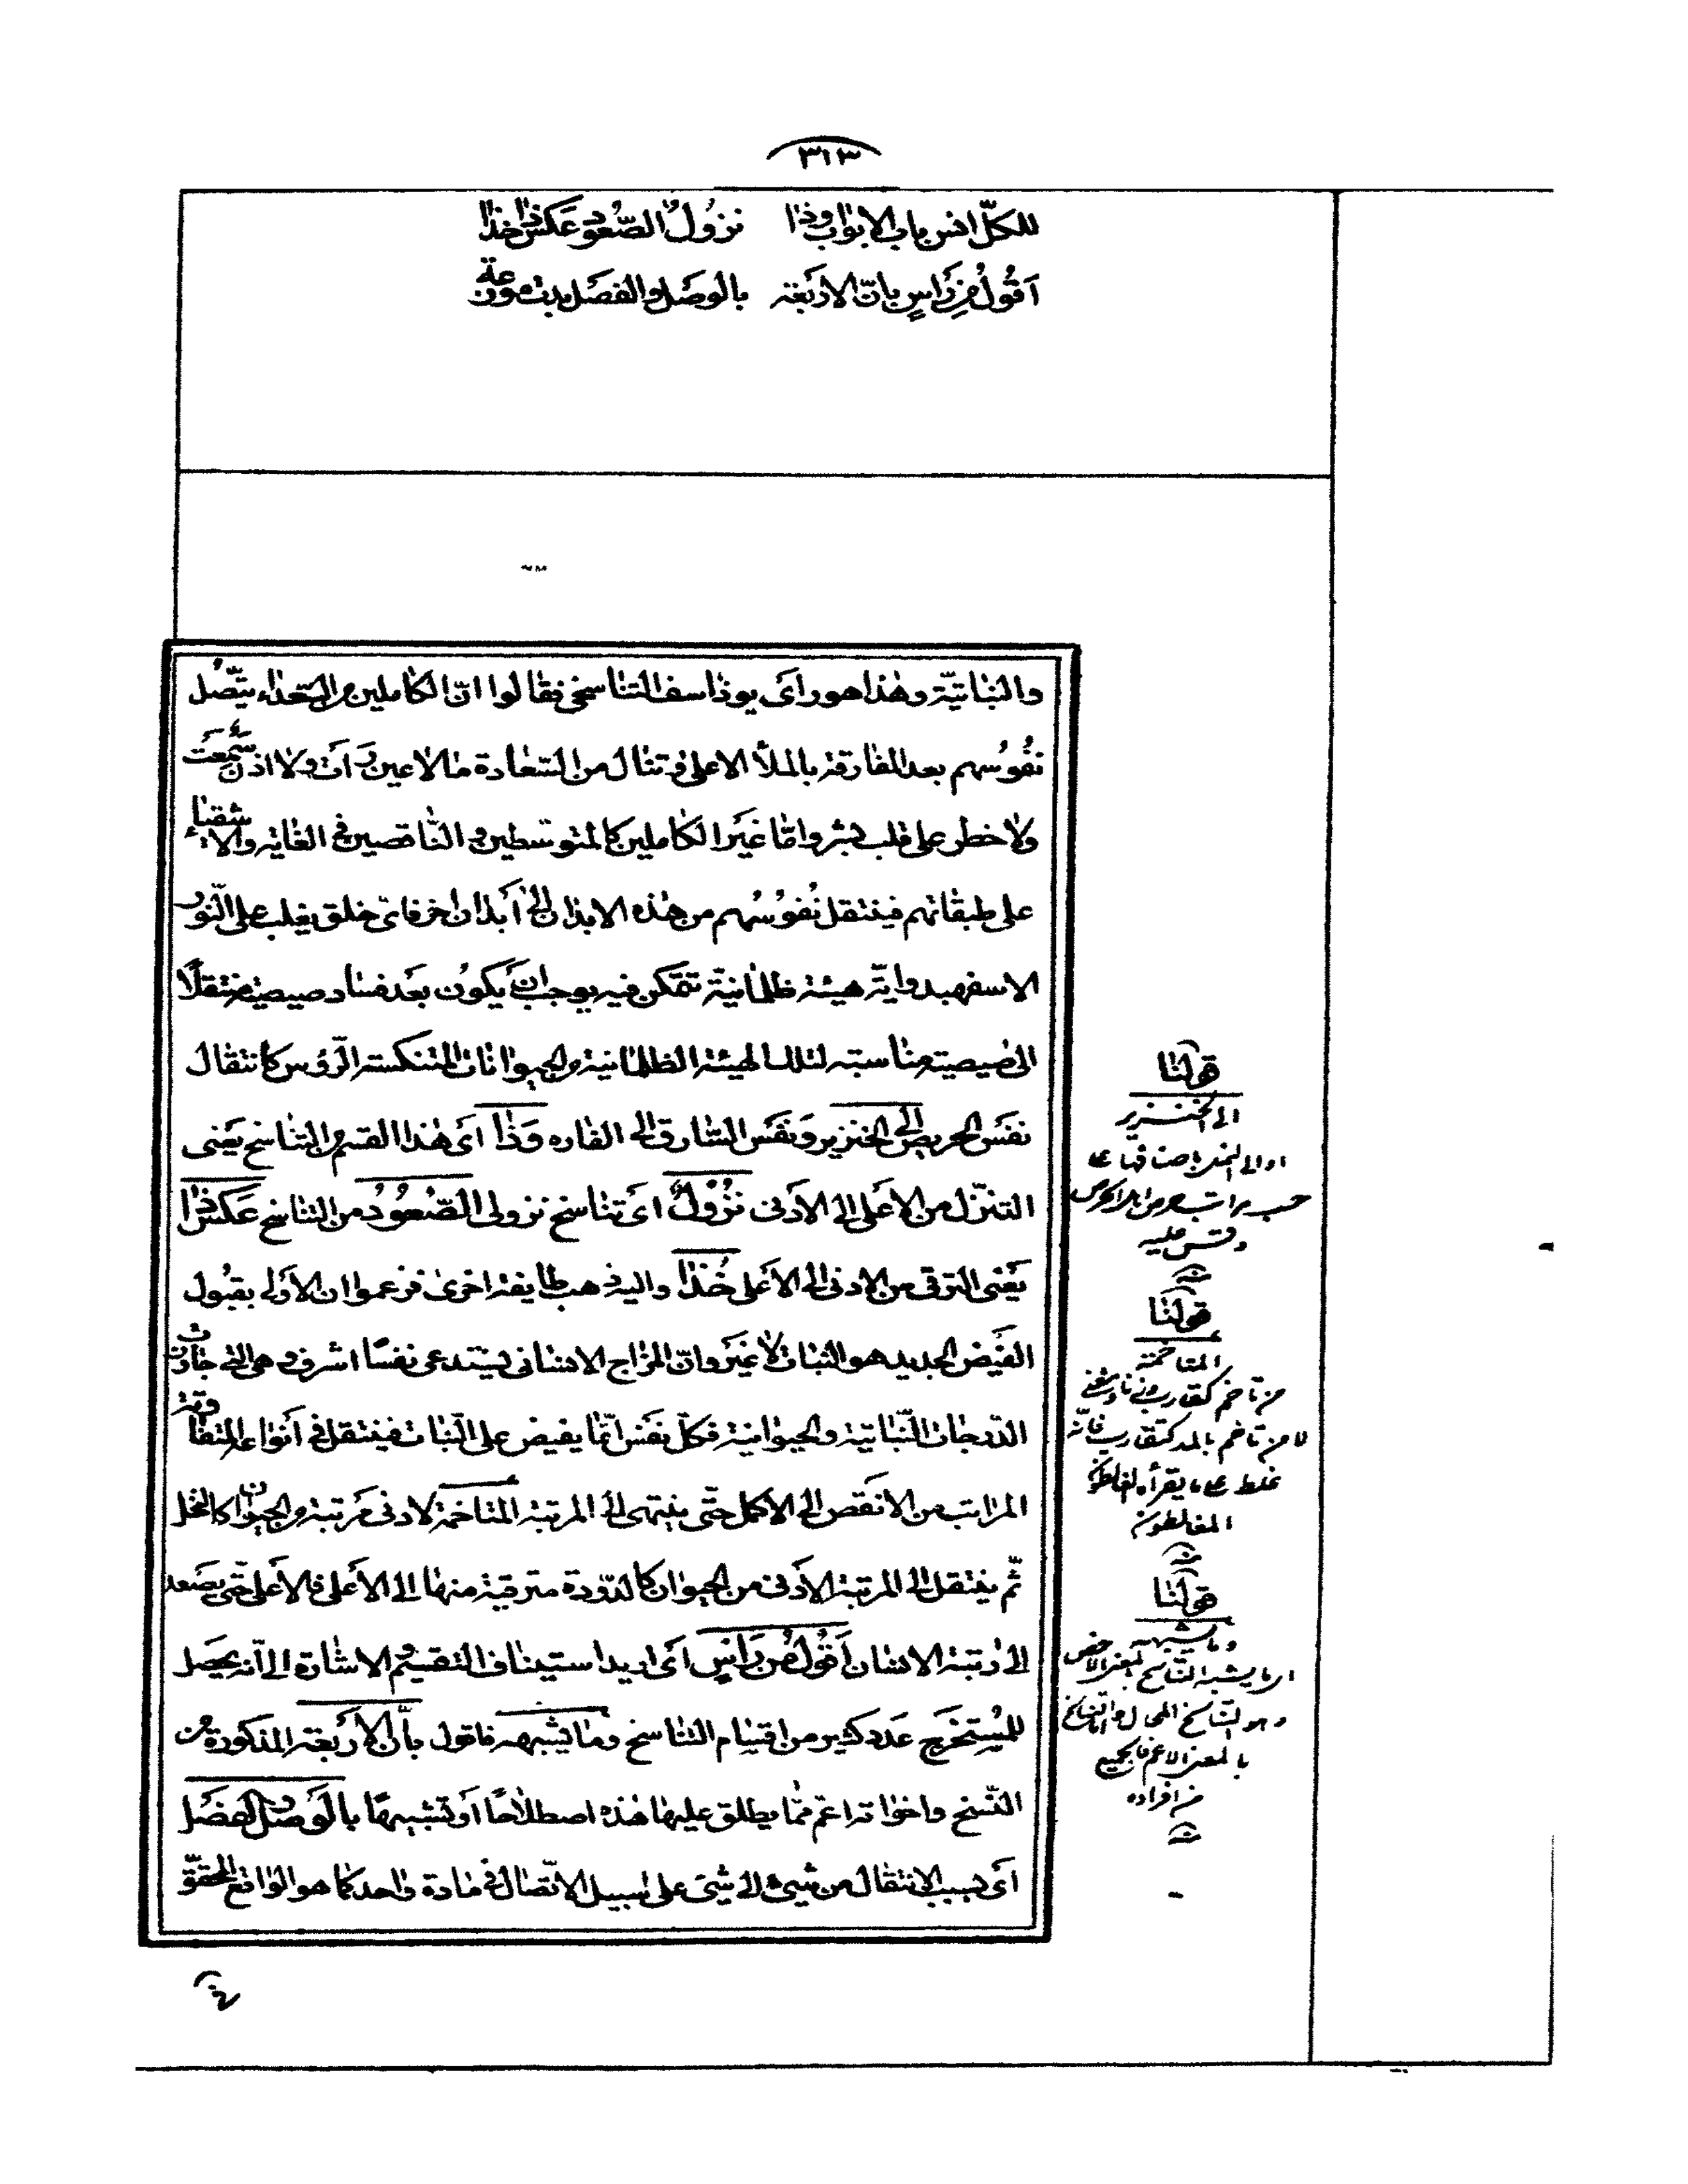 ٣١٣
للكلّ انس باب الابواب وذا نزول الصّعود عكس ذا خذا
اقول مِن رَاسٍ بانّ الاربعة بالوصل والفصل بدت منوعة
والنباتيّة وهذا هو رأى يوذاسف التناسخى فقالوا انّ الكاملين من السّعداء يتّصل
نفوسهم بعد المفارقة بالملأ الاعلى وتنال من السّعادة ما لا عين رأت ولا اذن سمعت
ولا خطر على قلب بشر وامّا غير الكاملين كالمتوسّطين و النّاقصين فى الغاية والاشقياء
على طبقاتهم فينتقل نفوسهم من هذه الابدان إلى أبدان اخر فاىّ خلق يغلب على النّور
الاسفهبد وايّة هيئة ظلمانيّة تتمكن فيه يوجب ان يكون بعد فساد صيصيته منتقلًا
الى صيصية مناسبة لتلك الهيئة الظلمانية من الحيوانات المتنكسة الرّؤس كانتقال
نفس الحريص إلى الخنزير ونفس السّارق الى الفاره وَذا اى هذا القسم من التناسخ يعنى
التنزّل من الاعلى الى الادنى نزُولٌ اى تناسخ نزولى الصّعُودُ من التناسخ عكس ذا
يعنى الترقى من الادنى الى الاعلى خُذا واليه ذهب طايفة اخرى فزعموا ان الاولى بقبول
الفيض الجديد هو النبات لا غير وانّ المزاج الانسانى يستدعى نفسًا اشرف و هى التى جاوزت
الدّرجات النّباتية والحيوانية فكلّ نفس انّما يفيض على النّبات فينتقل فى أنواعه المتفاوتة
المراتب من الانقص الى الاكمل حتّى ينتهى الى المرتبة المتاخمة لادنى مرتبة من الحيوان كالنخل
ثمّ ينتقل الى المرتبة الادنى من الحيوان كالدّودة مترقية منها الى الأعلى فالاعلى حتّى يصعد
الى رتبة الانسان أقول من رَاسٍ اى اريد استيناف التقسيم و الاشارة الى انّه يحصل
للمستخرج عدد كثير من اقسام التناسخ وما يشبهه فاقول بانّ الأربعة المذكورة من
النّسخ واخواته اعمّ ممّا يطلق عليها هذه اصطلاحًا أو تشبيهًا بالوصل و الفصل
اى بسبب الانتقال من شىء الى شىء على سبيل الاتّصال فى مادة واحد كما هو الواقع المحقّق
قولنا
الى الخنزير
او الى النمل باصنافها على
حسب مراتب حرص ابدا كرص
وقس عليه
منه
قولنا
المتاخمة
من تاخم كتقارب وزنا ومعنى
لا من تأخّم بالمد كتقارب فانّه
غلط على ما يقرأه الغالطون
المغالطون
منه
قولنا
وما يشبهه
اى ما يشبه التناسخ بالمعنى الاخص
وهو التناسخ المحال واما التناسخ
بالمعنى الاعم فالجميع
من افراده
منه